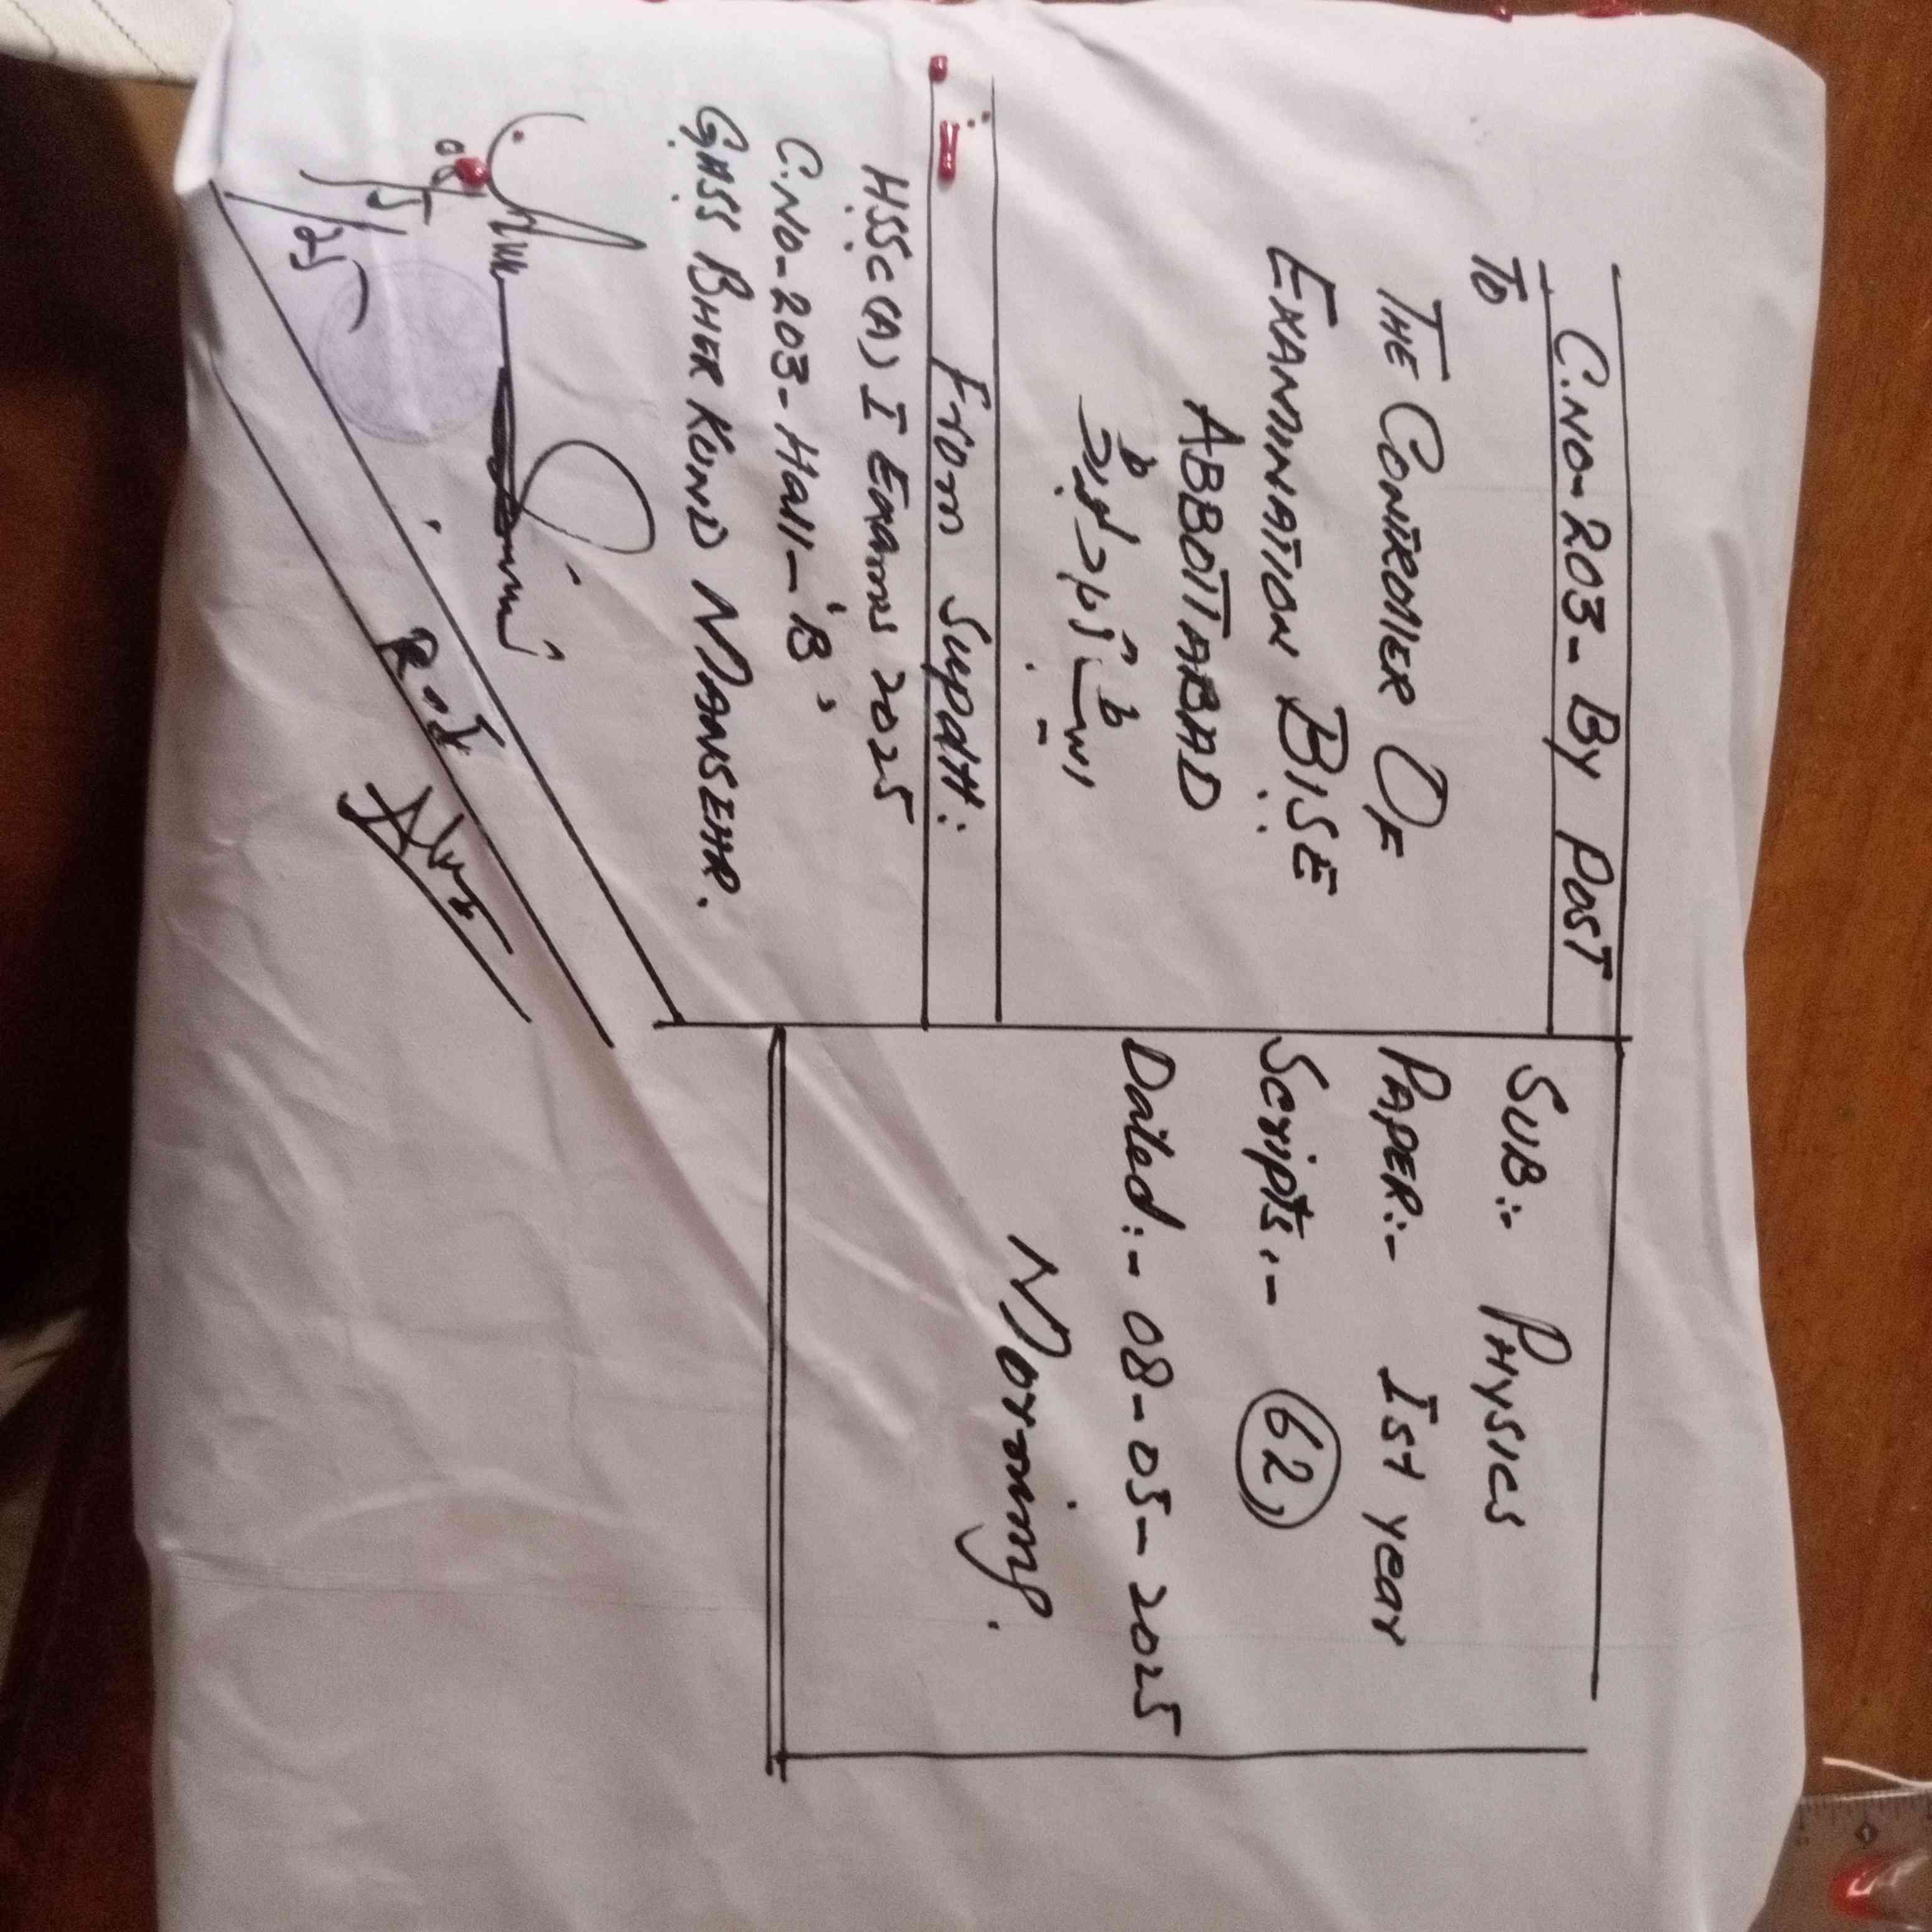 C.NO-203-By Post
To
THE CONTROLLER OF
EXAMINATION BISE
ABBOTTABAD
From Supdtt:
HSSC(A) I Exams 2025
C.NO-203-Hall-'B'
GHSS BHER KUND MANSEHR.
08/5/25
SUB:- PHYSICS
PAPER:- Ist year
Scripts:- 62,
Dated:- 08-05-2025
Morning.